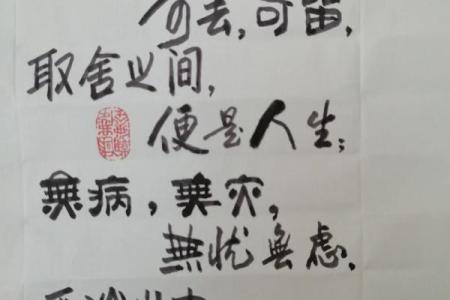 可去,可留,
取舍之间,
便是人生;
無病,無灾,
無忧無虑.